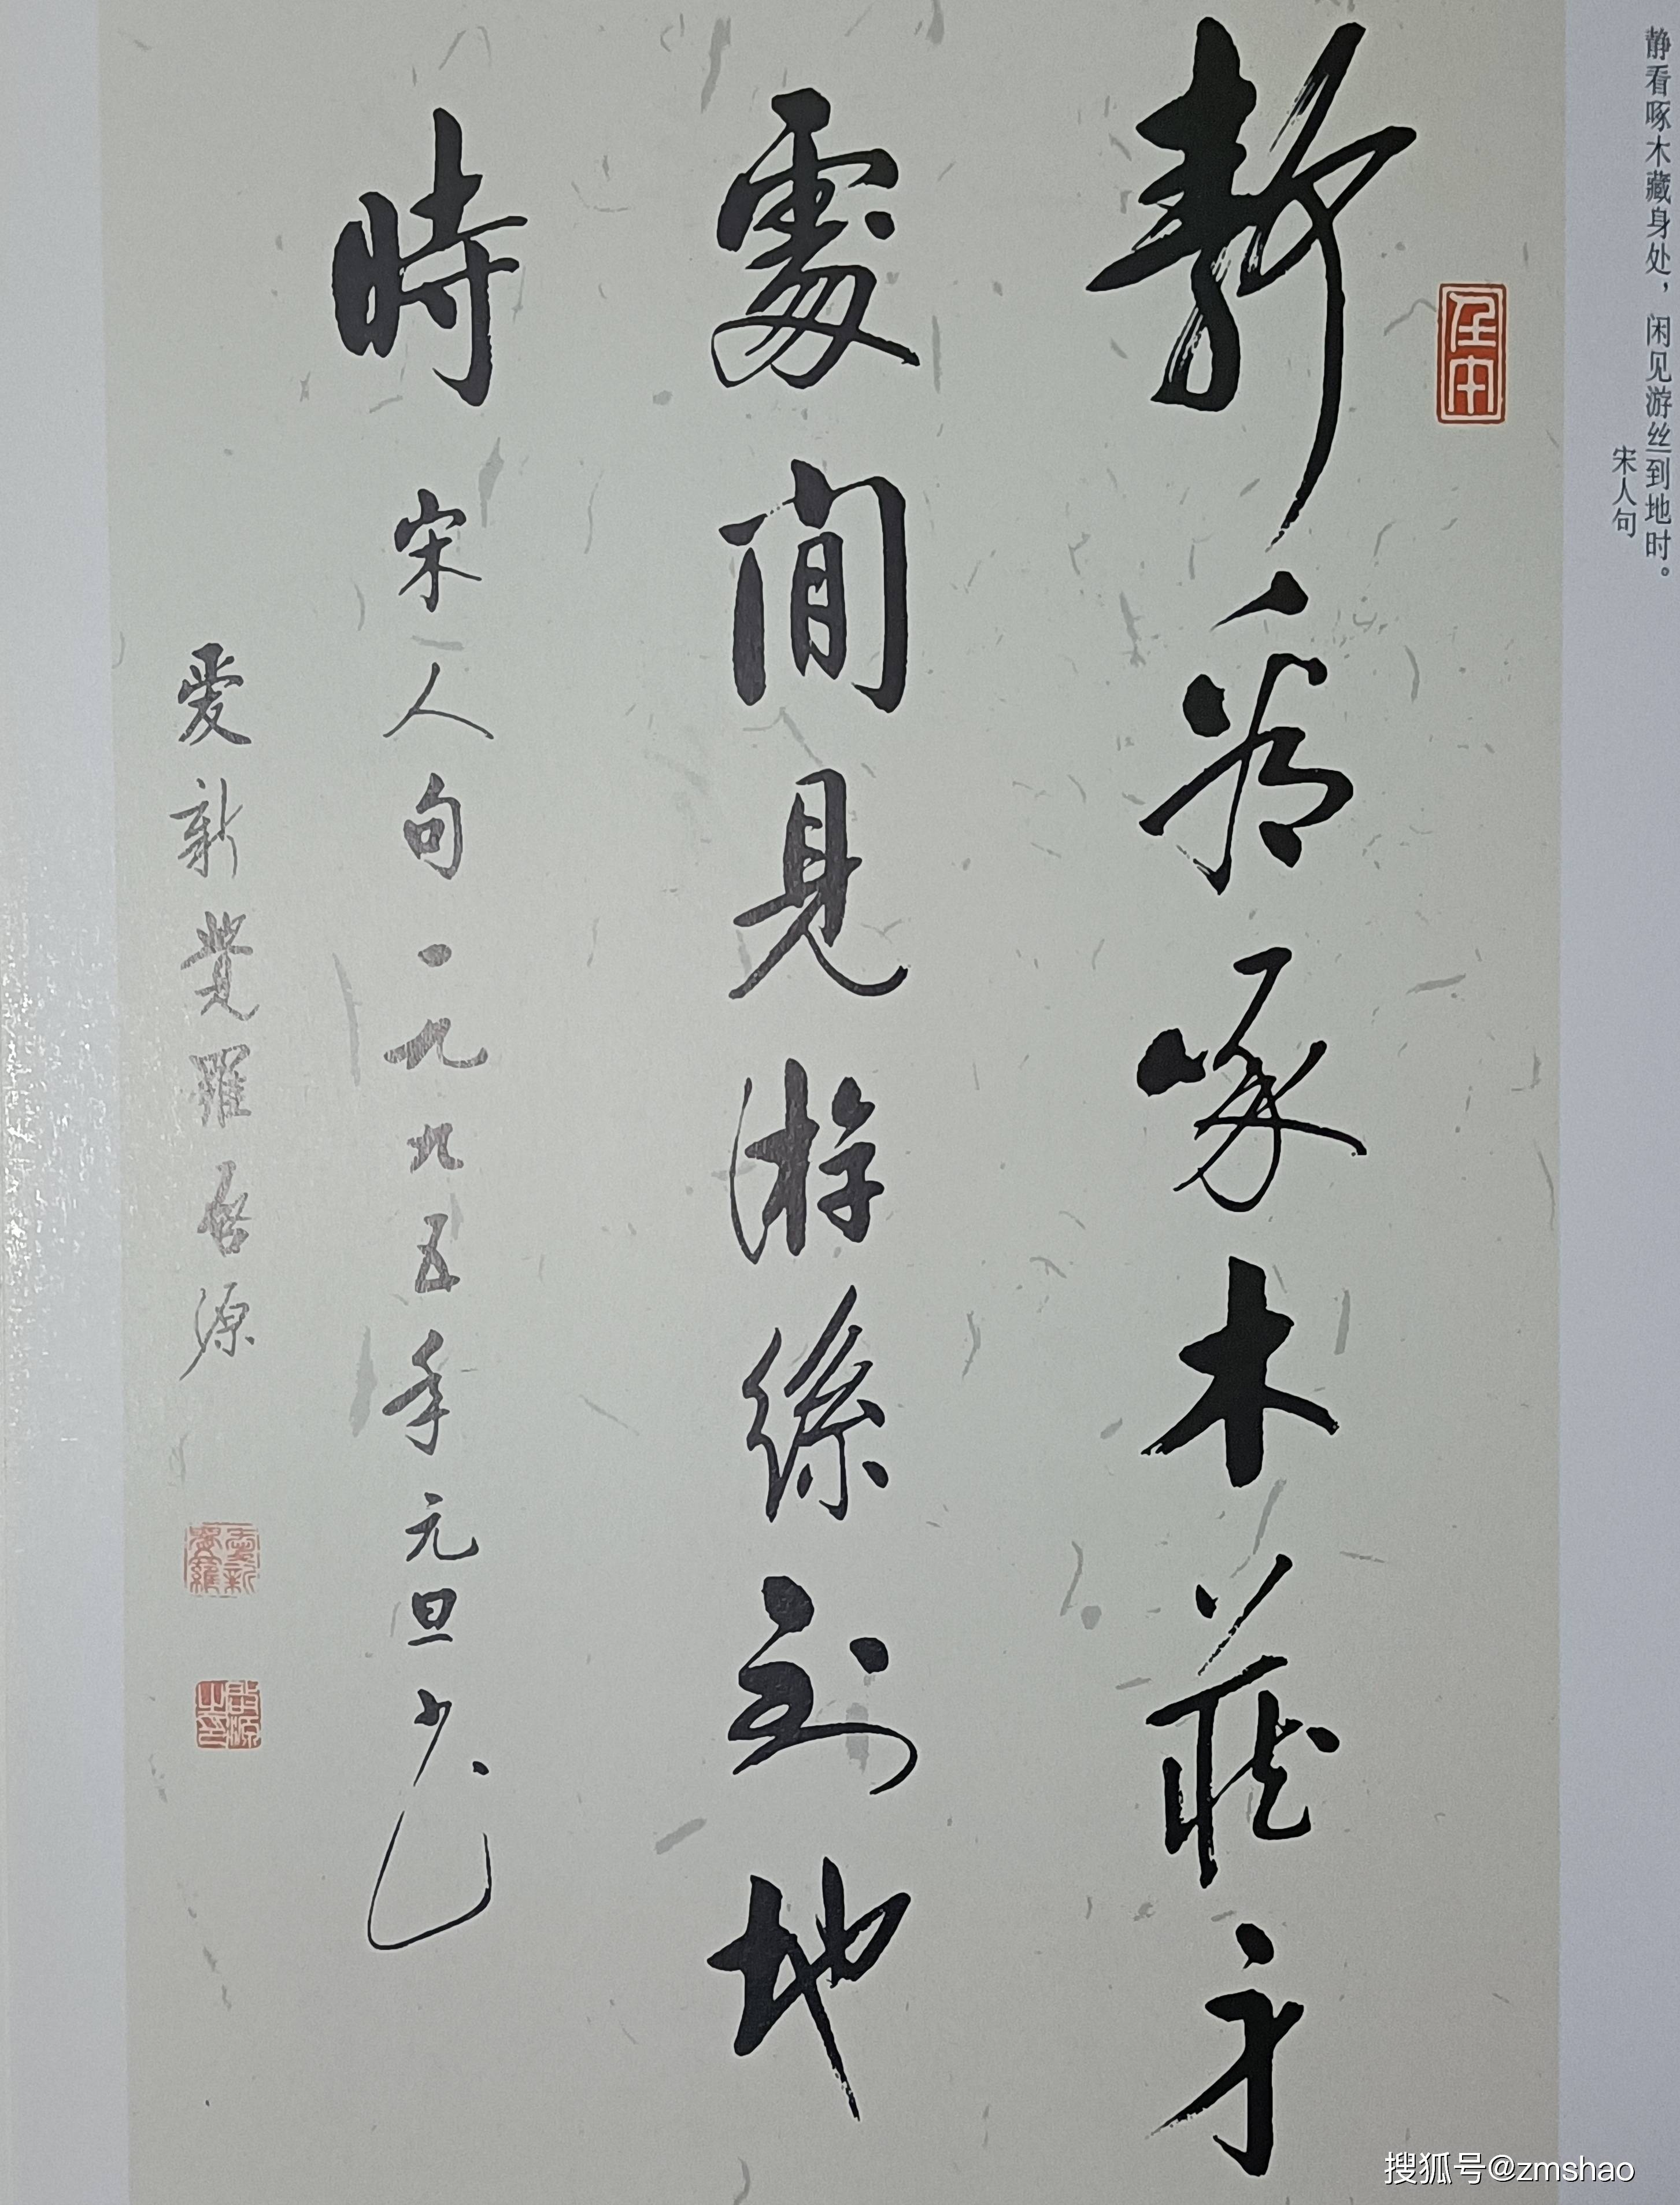 静看啄木藏身处，闲见游丝到地时。
宋人句
靜看啄木藏身
處閒見游絲到地
時 宋人句一九九五年元旦
爱新覺羅启源
愛新覺羅
啟源之印
搜狐号@zmshao